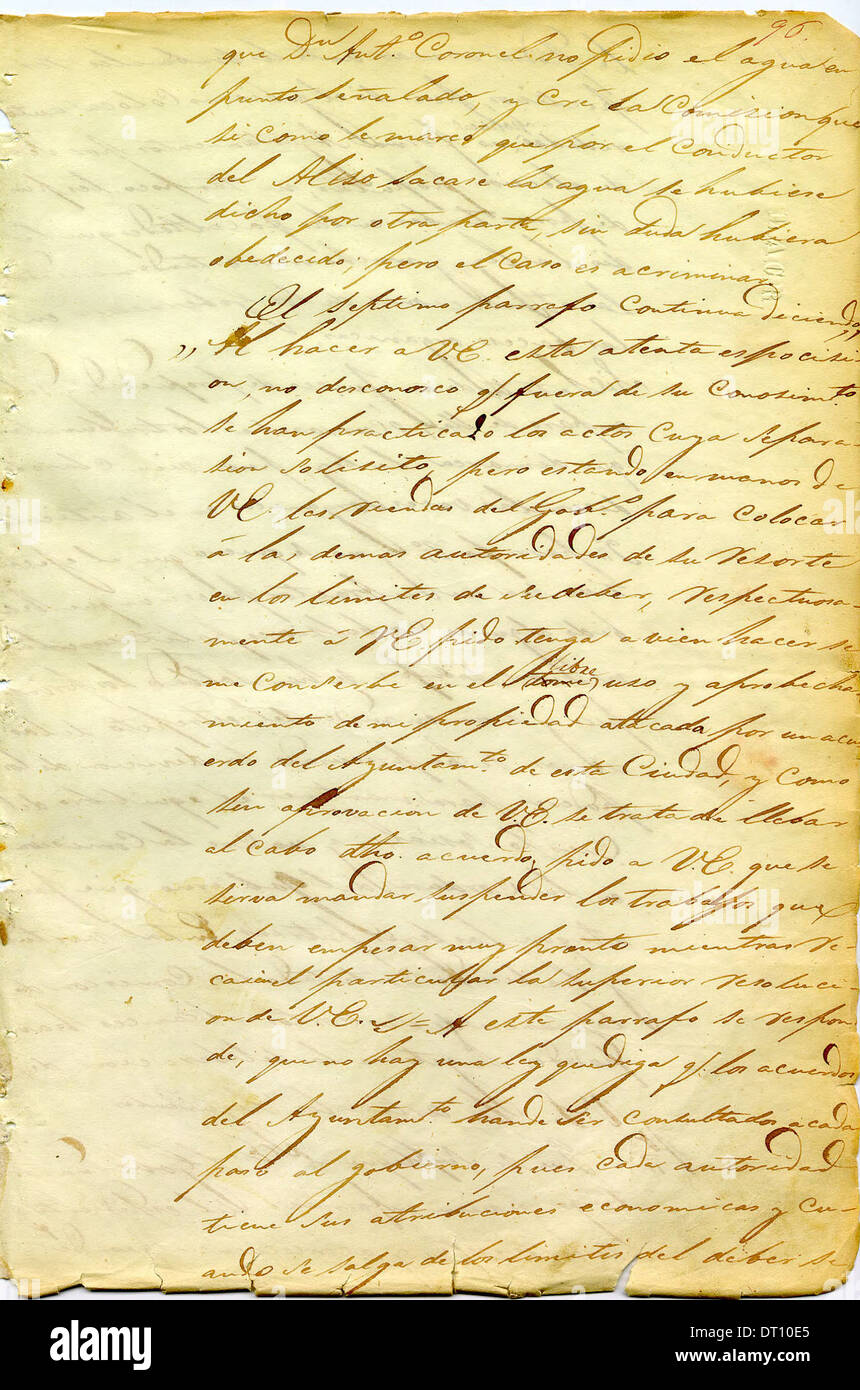 96.
que Dn. Anto. Coronel no pidio el agua en
punto señalado, y cré la Comision que
si como le marcó que por el conductor
del Aliso sacase la agua se hubiese
dicho por otra parte, sin duda hubiera
obedecido; pero el caso es acriminar
El septimo parrafo continua diciendo,
„ Al hacer a V.E. esta atenta espocisi-
on, no desconosco q. fuera de su conosimto.
se han practicado los actos cuya separa-
sion solisito, pero estando en manos de
VE. las riendas del Gobo. para colocar
á las demas autoridades de su resorte
en los limites de su deber, respectuosa-
mente á VE. pido tenga a vien hacer se
me conserbe en el libre uso y aprobecha
miento de mi propiedad atacada por un acu
erdo del Ayuntamto. de esta Ciudad, y como
sin aprovacion de V.E. se trata de llebar
al cabo dho. acuerdo, pido a V.E. que se
sirva mandar suspender los trabajos que
deben empesar muy pronto mientras re-
cae el particular la superior resoluci-
on de V.E. „= A este parrafo se respon
de, que no hay una ley que diga q. los acuerdos
del Ayuntamto. han de ser consultados a cada
paso al gobierno, pues cada autoridad
tiene sus atribuciones economicas y cu-
ando se salga de los limites del deber se
alamy
Image ID: DT10E5
www.alamy.com